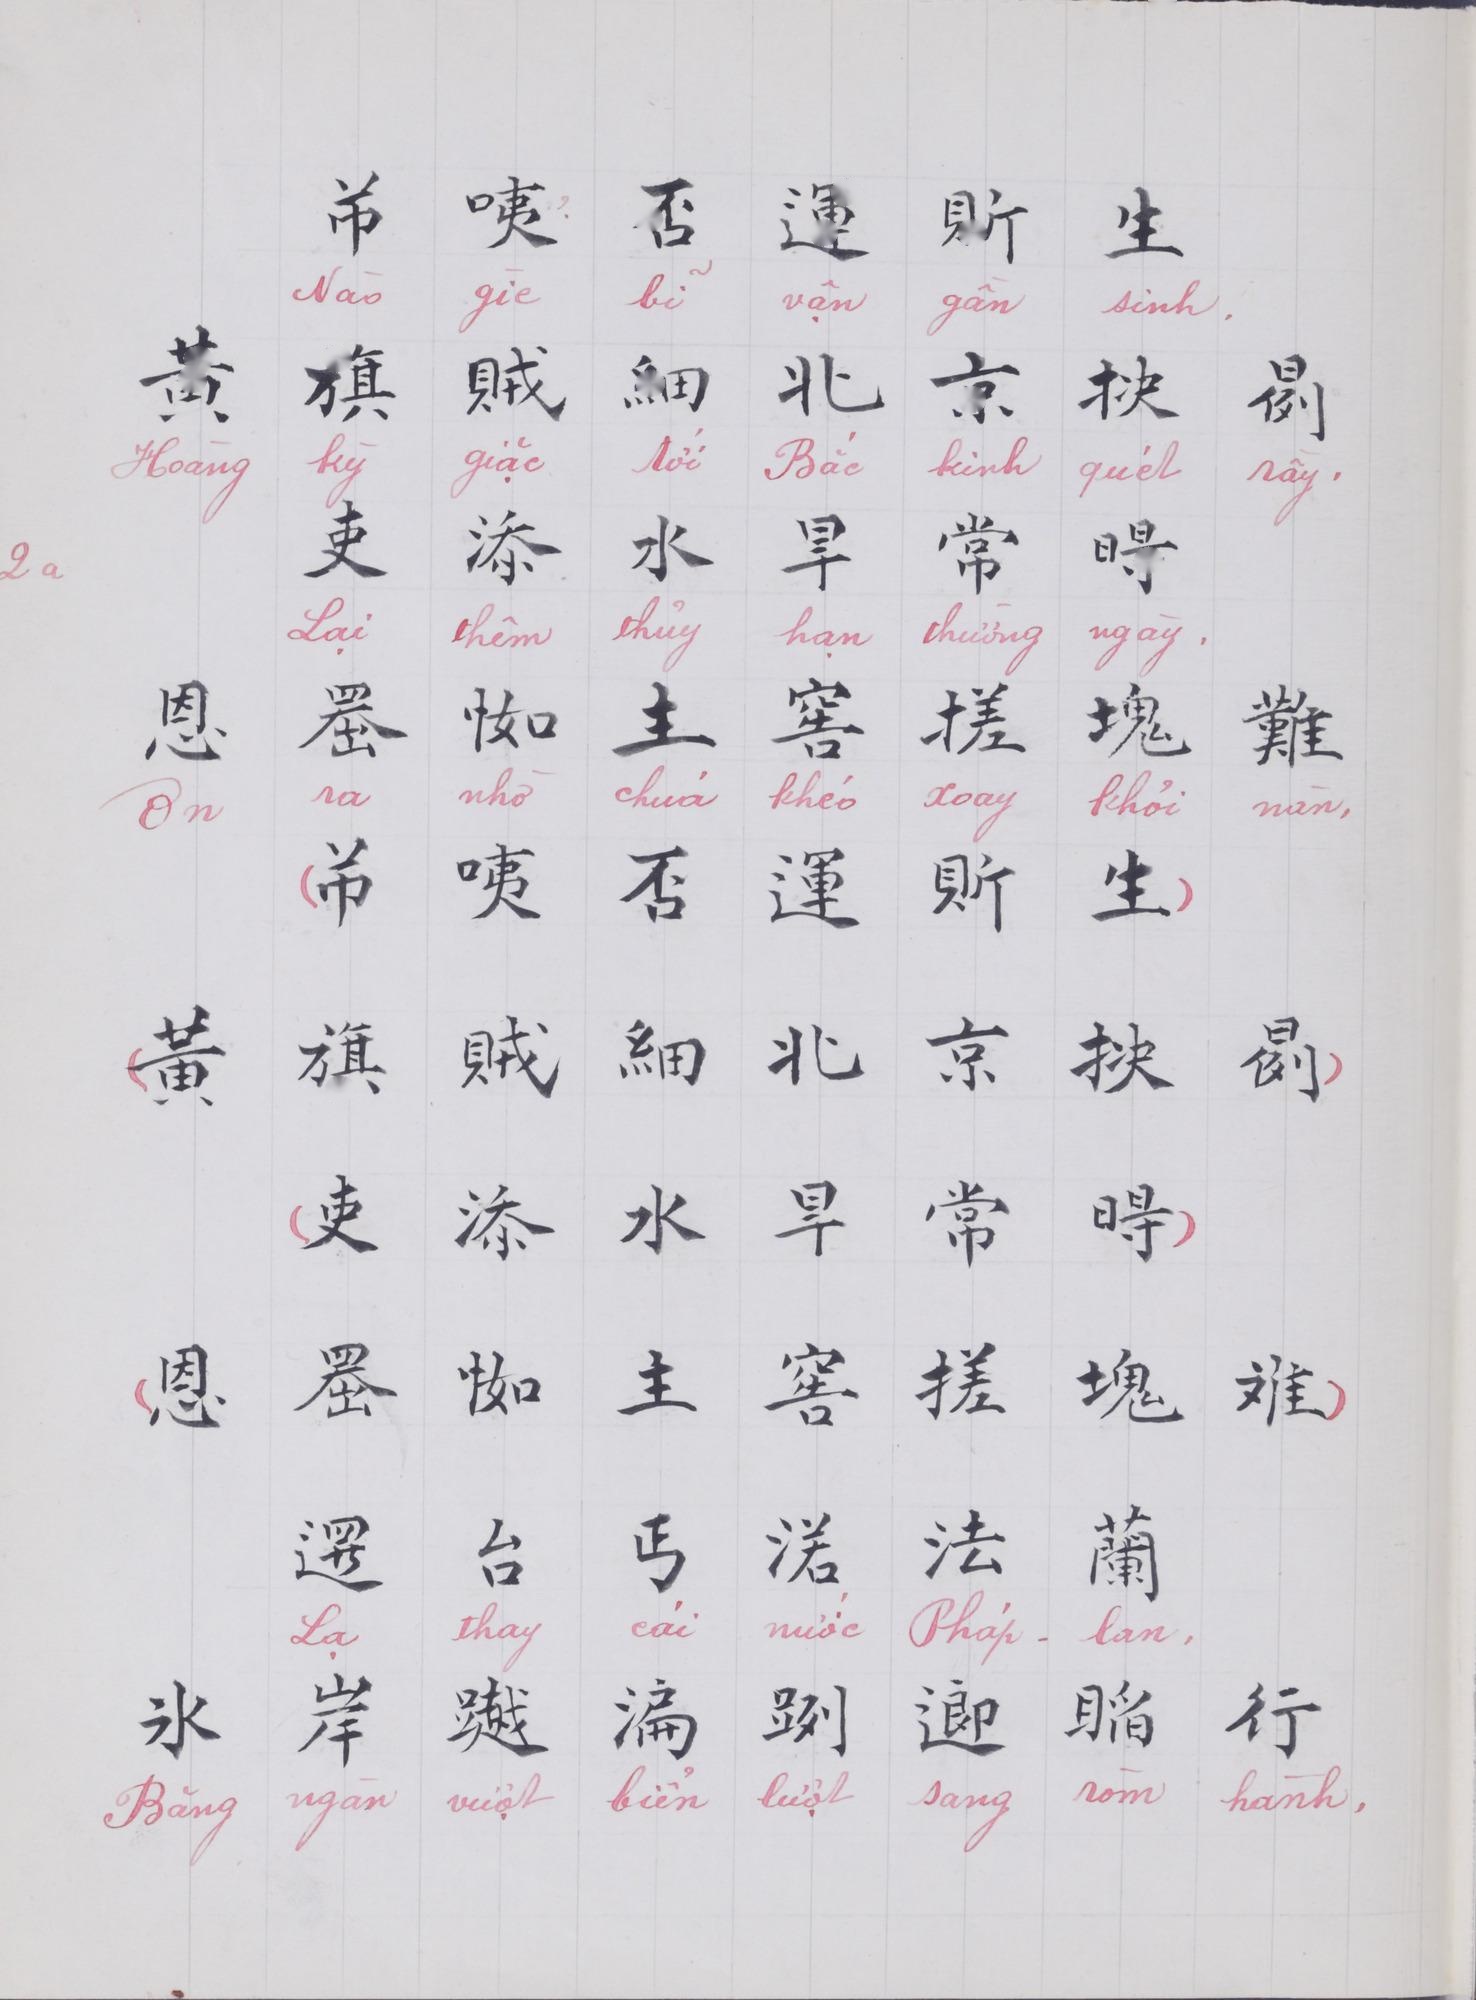 吊 咦 否 運 貯 生
Nào giè bĩ vận gần sinh.
黃 旗 賊 細 北 京 抰
Hoàng kỳ giặc tới Bắc kinh quét rầy.
吏 添 水 旱 常 㝵
2a
Lại thêm thủy hạn thường ngày.
恩 㗂 主 窖 搓 塊 難
Ơn ra nhờ chúa khéo xoay khỏi nàn,
(吊 咦 否 運 貯 生)
(黃 旗 賊 細 北 京 抰)
(吏 添 水 旱 常)
(恩 主 窖 搓 塊 难)
台 丐 渃 法 蘭
Lạ thay cái nước Pháp - lan,
氷 岸 行
Băng ngàn vượt biển lượt sang ròm hành,